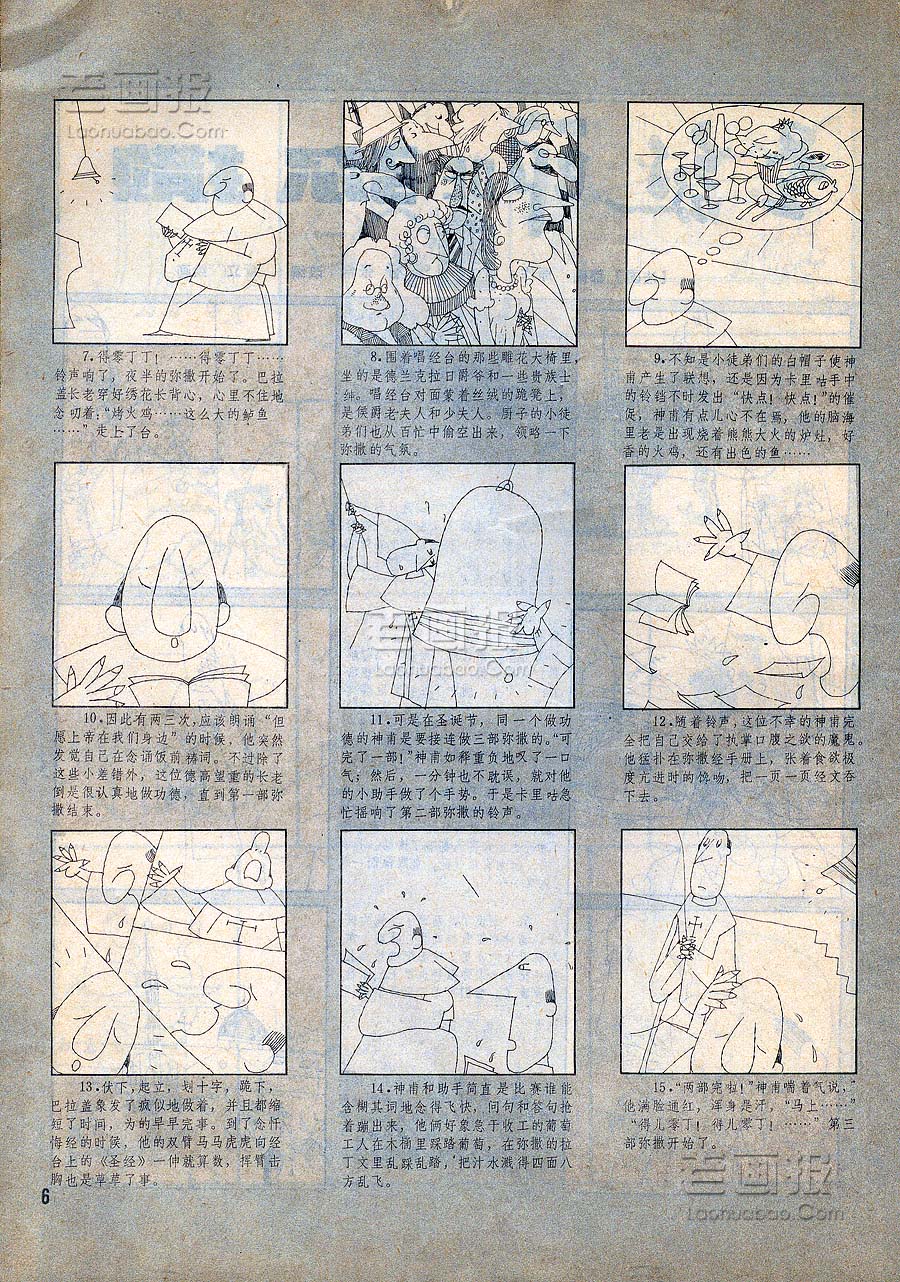 老画报
Laohuabao.Com
7.得零丁丁！……得零丁丁……
铃声响了，夜半的弥撒开始了。巴拉
盖长老穿好绣花长背心，心里不住地
念叨着：“烤火鸡……这么大的鲈鱼
……”走上了台。
8.围着唱经台的那些雕花大椅里，
坐的是德兰克拉日爵爷和一些贵族士
绅。唱经台对面蒙着丝绒的跪凳上，
是侯爵老夫人和少夫人。厨子的小徒
弟们也从百忙中偷空出来，领略一下
弥撒的气氛。
9.不知是小徒弟们的白帽子使神
甫产生了联想，还是因为卡里咕手中
的铃铛不时发出“快点！快点！”的催
促，神甫有点儿心不在焉，他的脑海
里老是出现烧着熊熊大火的炉灶，好
香的火鸡，还有出色的鱼……
10.因此有两三次，应该朗诵“但
愿上帝在我们身边”的时候，他突然
发觉自己在念诵饭前祷词。不过除了
这些小差错外，这位德高望重的长老
倒是很认真地做功德，直到第一部弥
撒结束。
11.可是在圣诞节，同一个做功
德的神甫是要接连做三部弥撒的。“可
完了一部！”神甫如释重负地叹了一口
气；然后，一分钟也不耽误，就对他
的小助手做了个手势。于是卡里咕急
忙摇响了第二部弥撒的铃声。
12.随着铃声，这位不幸的神甫完
全把自己交给了执掌口腹之欲的魔鬼。
他猛扑在弥撒经手册上，张着食欲极
度亢进时的馋吻，把一页一页经文吞
下去。
13.伏下，起立，划十字，跪下，
巴拉盖象发了疯似地做着，并且都缩
短了时间，为的早早完事。到了念忏
悔经的时候，他的双臂马马虎虎向经
台上的《圣经》一伸就算数，挥臂击
胸也是草草了事。
14.神甫和助手简直是比赛谁能
含糊其词地念得飞快，问句和答句抢
着蹦出来，他俩好象急于收工的葡萄
工人在木桶里踩踏葡萄，在弥撒的拉
丁文里乱踩乱踏，把汁水溅得四面八
方乱飞。
15.“两部完啦！”神甫喘着气说，”
他满脸通红，浑身是汗，“马上……”
“得儿零丁！得儿零丁！……”第三
部弥撒开始了。
6
老画报
Laohuabao.Com
老画报
Laohuabao.Com